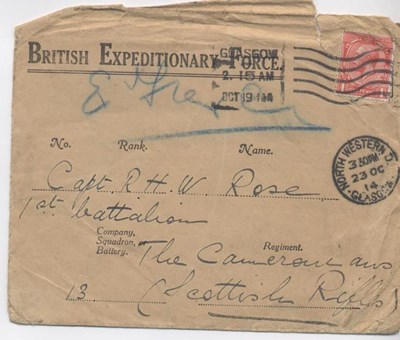 BRITISH EXPEDITIONARY FORCE.
GLASGOW
2. 15 AM
OCT 19 14
No. Rank. Name.
NORTH WESTERN D.O.
3 30PM
23 OC
14
GLASGOW
Capt. R H W Rose
1st battalion
Company,
Squadron,
Battery.
Regiment.
The Cameronians
13 (Scottish Rifles)